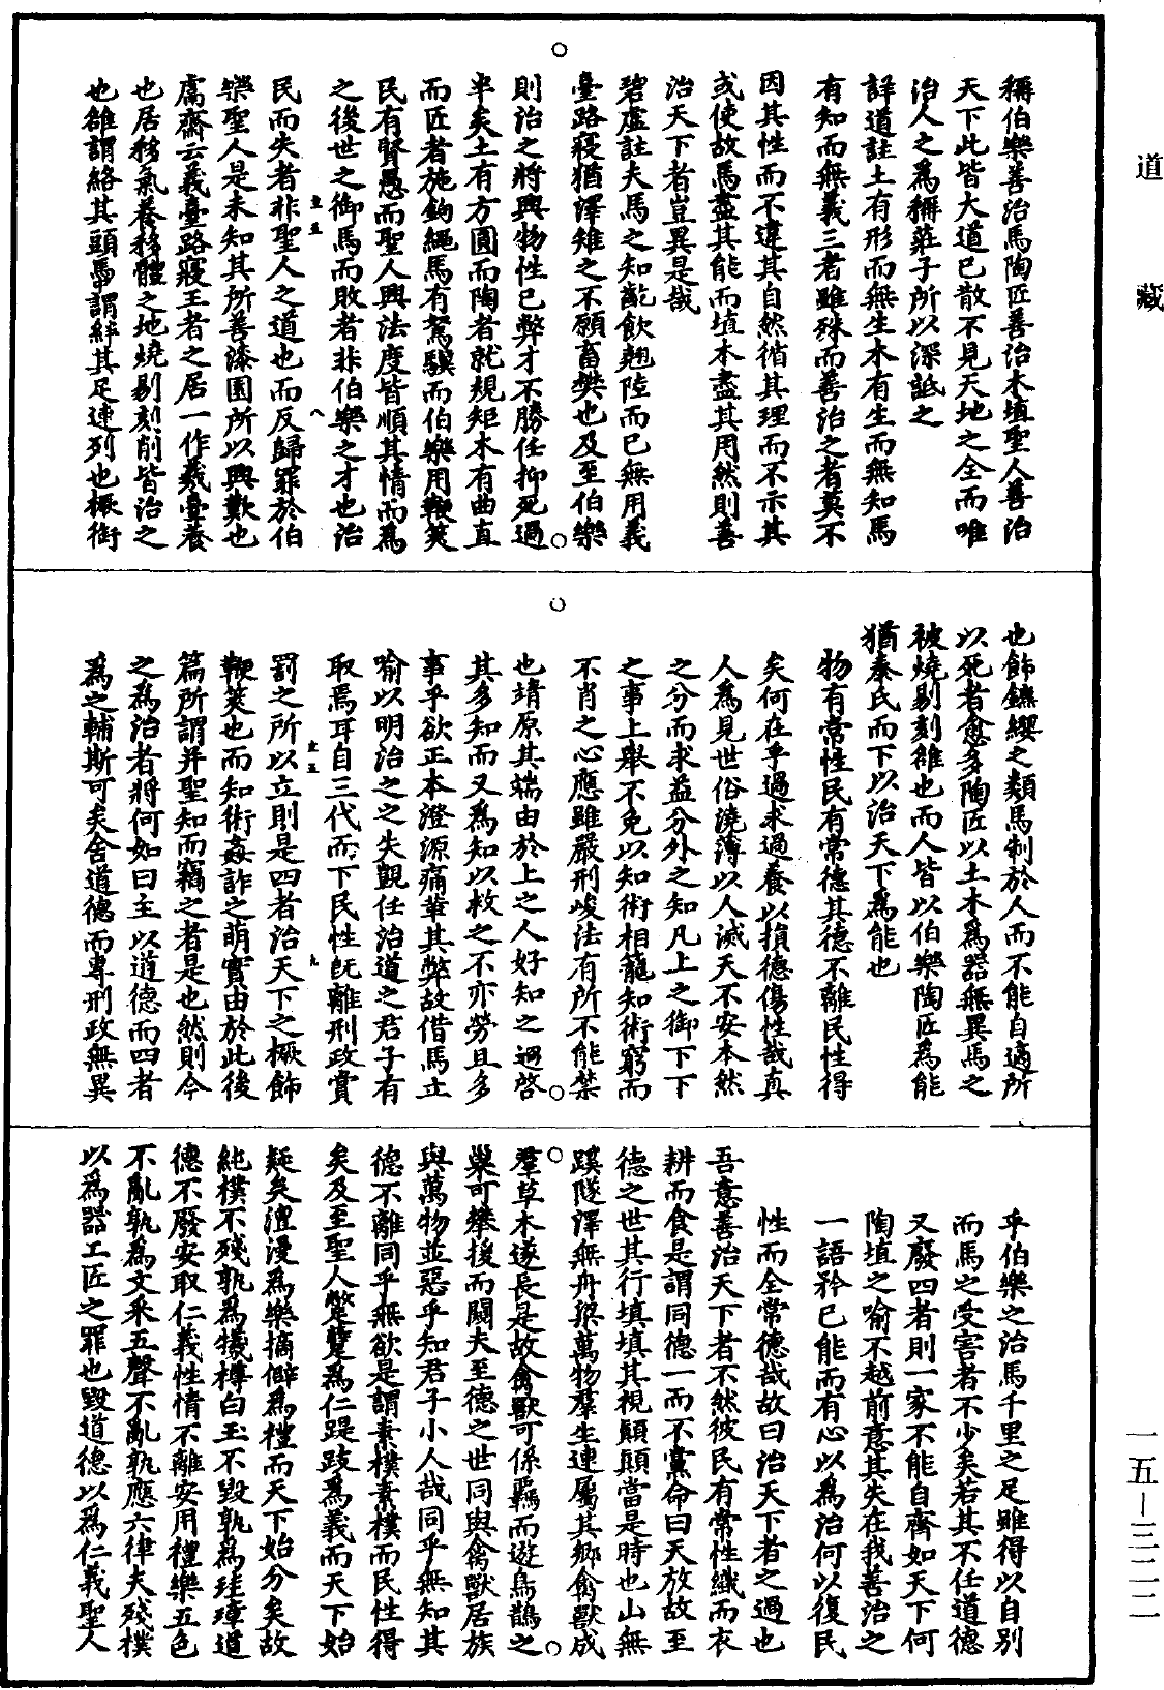 道藏
稱伯樂善治馬陶匠善治木埴聖人善治
天下此皆大道已散不見天地之全而唯
治人之為稱莊子所以深詆之
詳道註土有形而無生木有生而無知馬
有知而無義三者雖殊而善治之者莫不
因其性而不違其自然循其理而不示其
或使故馬盡其能而埴木盡其用然則善
治天下者豈異是哉
碧虛註夫馬之知齕飲翹陸而已無用義
臺路寢猶澤雉之不願畜樊也及至伯樂
則治之將興物性已弊才不勝任抑死過
半矣土有方圓而陶者就規矩木有曲直
而匠者施鉤繩馬有駑驥而伯樂用鞭筴
民有賢愚而聖人興法度皆順其情而為
之後世之御馬而敗者非伯樂之才也治
民而失者非聖人之道也而反歸罪於伯
樂聖人是未知其所善漆園所以興歎也
鬳齋云義臺路寢王者之居一作羲臺養
也居移氣養移體之地燒剔刻削皆治之
也雒謂絡其頭馽謂絆其足連列也橛銜
也飾鑣纓之類馬制於人而不能自適所
以死者愈多陶匠以土木為器無異馬之
被燒剔刻雒也而人皆以伯樂陶匠為能
猶秦氏而下以治天下為能也
物有常性民有常德其德不離民性得
矣何在乎過求過養以損德傷性哉真
人為見世俗澆薄以人滅天不安本然
之分而求益分外之知凡上之御下下
之事上舉不免以知術相籠知術窮而
不肖之心應雖嚴刑峻法有所不能禁
也靖原其端由於上之人好知之過啓
其多知而又為知以救之不亦勞且多
事乎欲正本澄源痛革其弊故借馬立
喻以明治之之失觀任治道之君子有
取焉耳自三代而下民性旣離刑政賞
罰之所以立則是四者治天下之橛飾
鞭筴也而知術姦詐之萌實由於此後
篇所謂并聖知而竊之者是也然則今
之為治者將何如曰主以道德而四者
為之輔斯可矣舍道德而專刑政無異
乎伯樂之治馬千里之足雖得以自別
而馬之受害者不少矣若其不任道德
又廢四者則一家不能自齊如天下何
陶埴之喻不越前意其失在我善治之
一語矜已能而有心以為治何以復民
性而全常德哉故曰治天下者之過也
吾意善治天下者不然彼民有常性織而衣
耕而食是謂同德一而不黨命曰天放故至
德之世其行填填其視顛顛當是時也山無
蹊隧澤無舟梁萬物羣生連屬其鄉禽獸成
羣草木遂長是故禽獸可係羈而遊鳥鵲之
巢可攀援而闚夫至德之世同與禽獸居族
與萬物並惡乎知君子小人哉同乎無知其
德不離同乎無欲是謂素樸素樸而民性得
矣及至聖人蹩躠為仁踶跂為義而天下始
疑矣澶漫為樂摘僻為禮而天下始分矣故
純樸不殘孰為犧樽白玉不毀孰為珪璋道
德不廢安取仁義性情不離安用禮樂五色
不亂孰為文采五聲不亂孰應六律夫殘樸
以為器工匠之罪也毀道德以為仁義聖人
一五—三二二